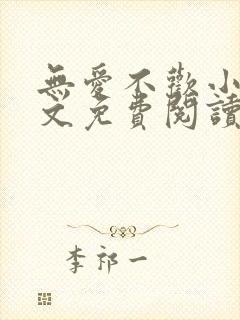 無愛不歡小
文免費閱讀
李祁一